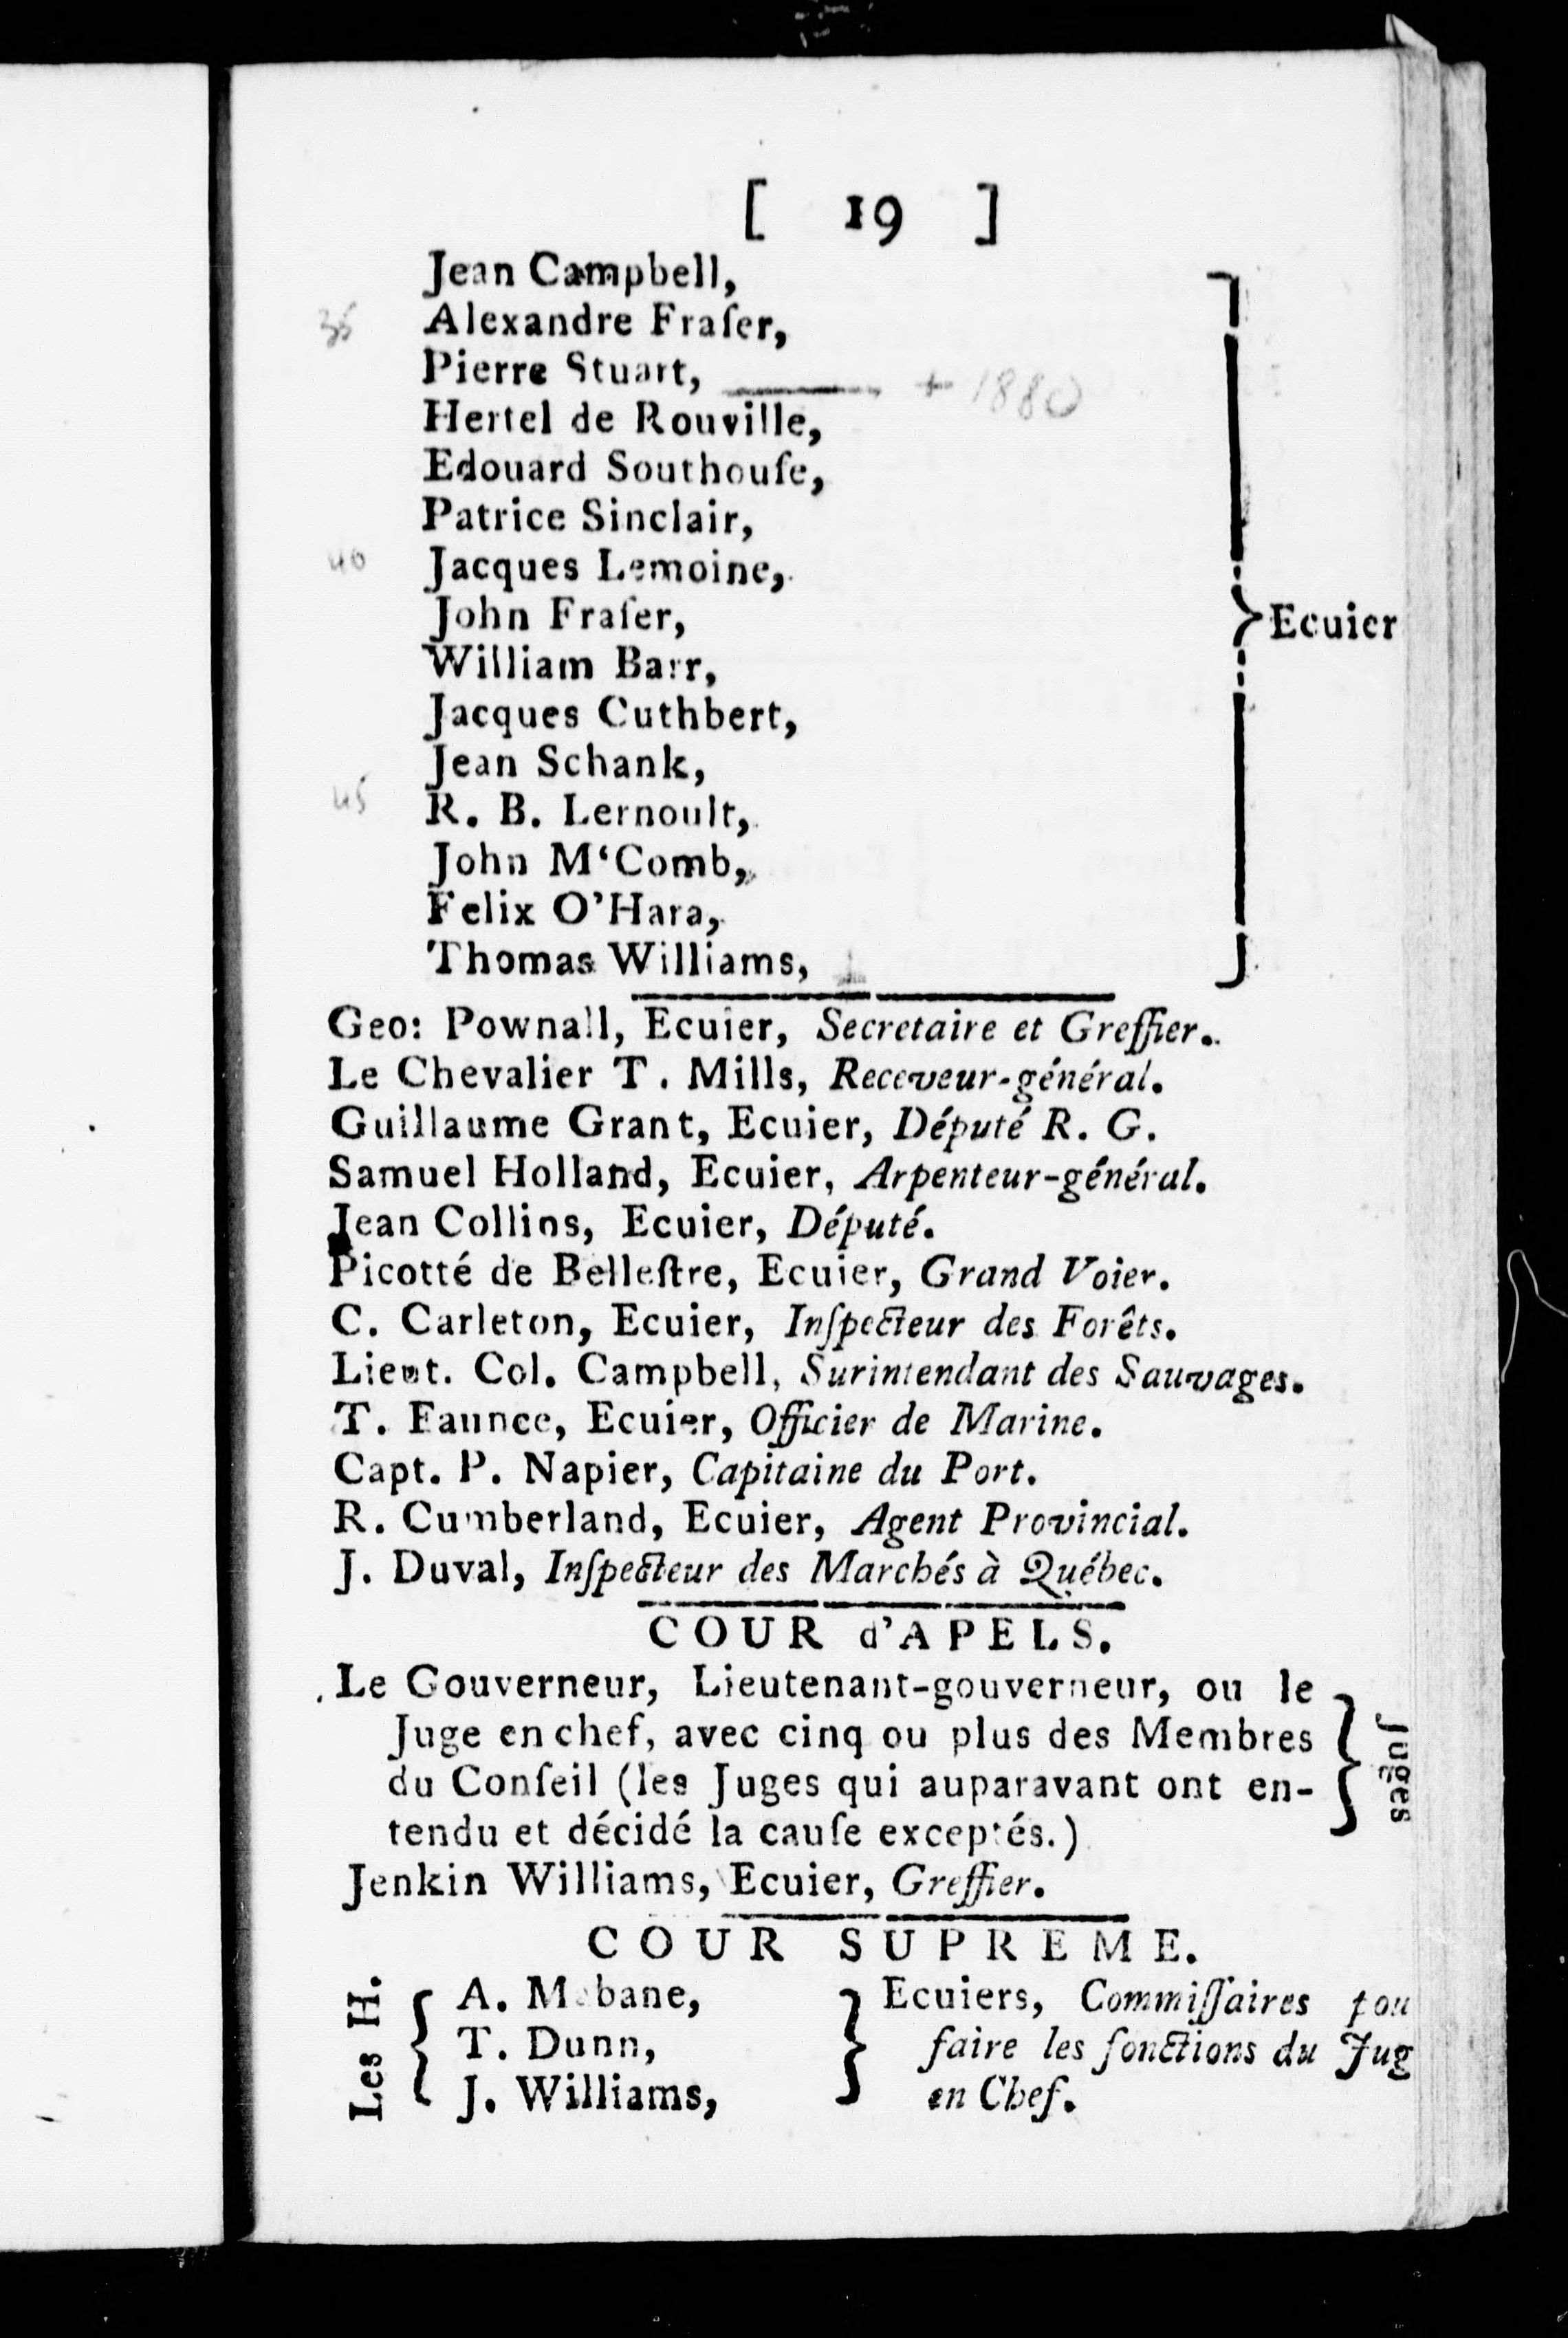 [ 19 ]
Jean Campbell,
35 Alexandre Fraſer,
Pierre Stuart, + 1880
Hertel de Rouville,
Edouard Southouſe,
Patrice Sinclair,
40 Jacques Lemoine,
John Fraſer,
Ecuier
William Barr,
Jacques Cuthbert,
Jean Schank,
45 R. B. Lernoult,
John M‘Comb,
Felix O'Hara,
Thomas Williams,
Geo: Pownall, Ecuier, Secretaire et Greffier.
Le Chevalier T. Mills, Receveur-général.
Guillaume Grant, Ecuier, Député R. G.
Samuel Holland, Ecuier, Arpenteur-général.
Jean Collins, Ecuier, Député.
Picotté de Belleſtre, Ecuier, Grand Voier.
C. Carleton, Ecuier, Inſpecteur des Forêts.
Lieut. Col. Campbell, Surintendant des Sauvages.
T. Faunce, Ecuier, Officier de Marine.
Capt. P. Napier, Capitaine du Port.
R. Cumberland, Ecuier, Agent Provincial.
J. Duval, Inſpecteur des Marchés à Québec.
COUR d'APELS.
Le Gouverneur, Lieutenant-gouverneur, ou le
Juge en chef, avec cinq ou plus des Membres
du Conſeil (les Juges qui auparavant ont en-
tendu et décidé la cauſe exceptés.)
Juges
Jenkin Williams, Ecuier, Greffier.
COUR SUPREME.
Les H.
A. Mabane,
T. Dunn,
J. Williams,
Ecuiers, Commiſſaires pou
faire les fonctions du Jug
en Chef.